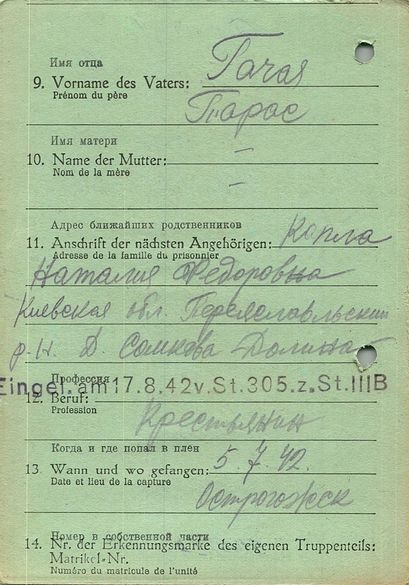 Имя отца
9. Vorname des Vaters:
Prénom du père
Тарас
Имя матери
10. Name der Mutter: –
Nom de la mère
–
Адрес ближайших родственников
11. Anschrift der nächsten Angehörigen:
Adresse de la famille du prisonnier
Наталия Федоровна
Киевская обл. Переяславльский
р-н. Д Сомкова Долина
Профессия
Eingel. am 17.8.42 v. St. 305. z. St. III B
12. Beruf:
Profession
Крестьянин
Когда и где попал в плен
13. Wann und wo gefangen: 5.7.42.
Date et lieu de la capture
Острогожск
Номер в собственной части
14. Nr. der Erkennungsmarke des eigenen Truppenteils:
Matrikel-Nr.
Numéro du matricule de l'unité